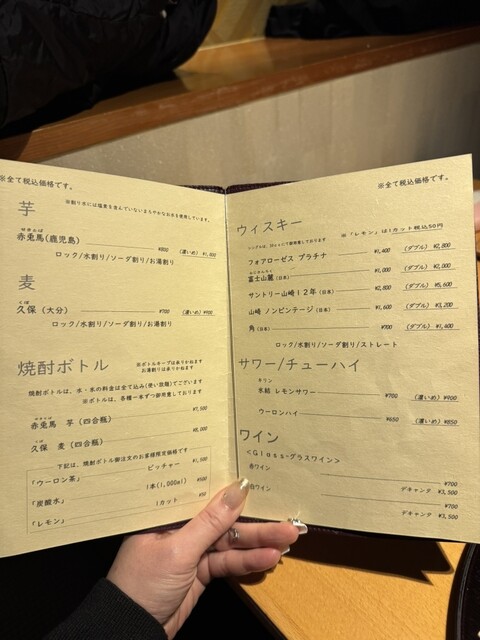 ※全て税込価格です。
芋
※割り水には塩素を含んでいないまろやかなお水を使用しています。
赤兎馬(鹿児島) ¥800 (濃いめ) ¥1,000
ロック/水割り/ソーダ割り/お湯割り
麦
くぼ
久保 (大分) ¥700 (濃いめ) ¥900
ロック/水割り/ソーダ割り/お湯割り
焼酎ボトル
※ボトルキープは承りかねます
お湯割りは承りかねます
焼酎ボトルは、水・氷の料金は全て込み(使い放題)でございます
※ボトルは、各種一本ずつ御用意しております
赤兎馬 芋 (四合瓶) ¥7,500
くぼ
久保 麦 (四合瓶) ¥8,000
下記は、焼酎ボトル御注文のお客様限定価格です
「ウーロン茶」 ピッチャー ¥1,500
「炭酸水」 1本(1,000ml) ¥500
「レモン」 1カット ¥50
※全て税込価格です。
ウィスキー
※「レモン」は1カット税込50円
フォアローゼス プラチナ ¥1,400 (ダブル) ¥2,800
富士山麓 (日本) ¥1,000 (ダブル) ¥2,000
サントリー山崎12年 (日本) ¥2,800 (ダブル) ¥5,600
山崎 ノンビンテージ (日本) ¥1,600 (ダブル) ¥3,200
角 (日本) ¥700 (ダブル) ¥1,400
ロック/水割り/ソーダ割り/ストレート
サワー/チューハイ
氷結 レモンサワー ¥700 (濃いめ) ¥900
ウーロンハイ ¥650 (濃いめ) ¥850
ワイン
<Glass-グラスワイン>
赤ワイン ¥700
デキャンタ ¥3,500
白ワイン ¥700
デキャンタ ¥3,500